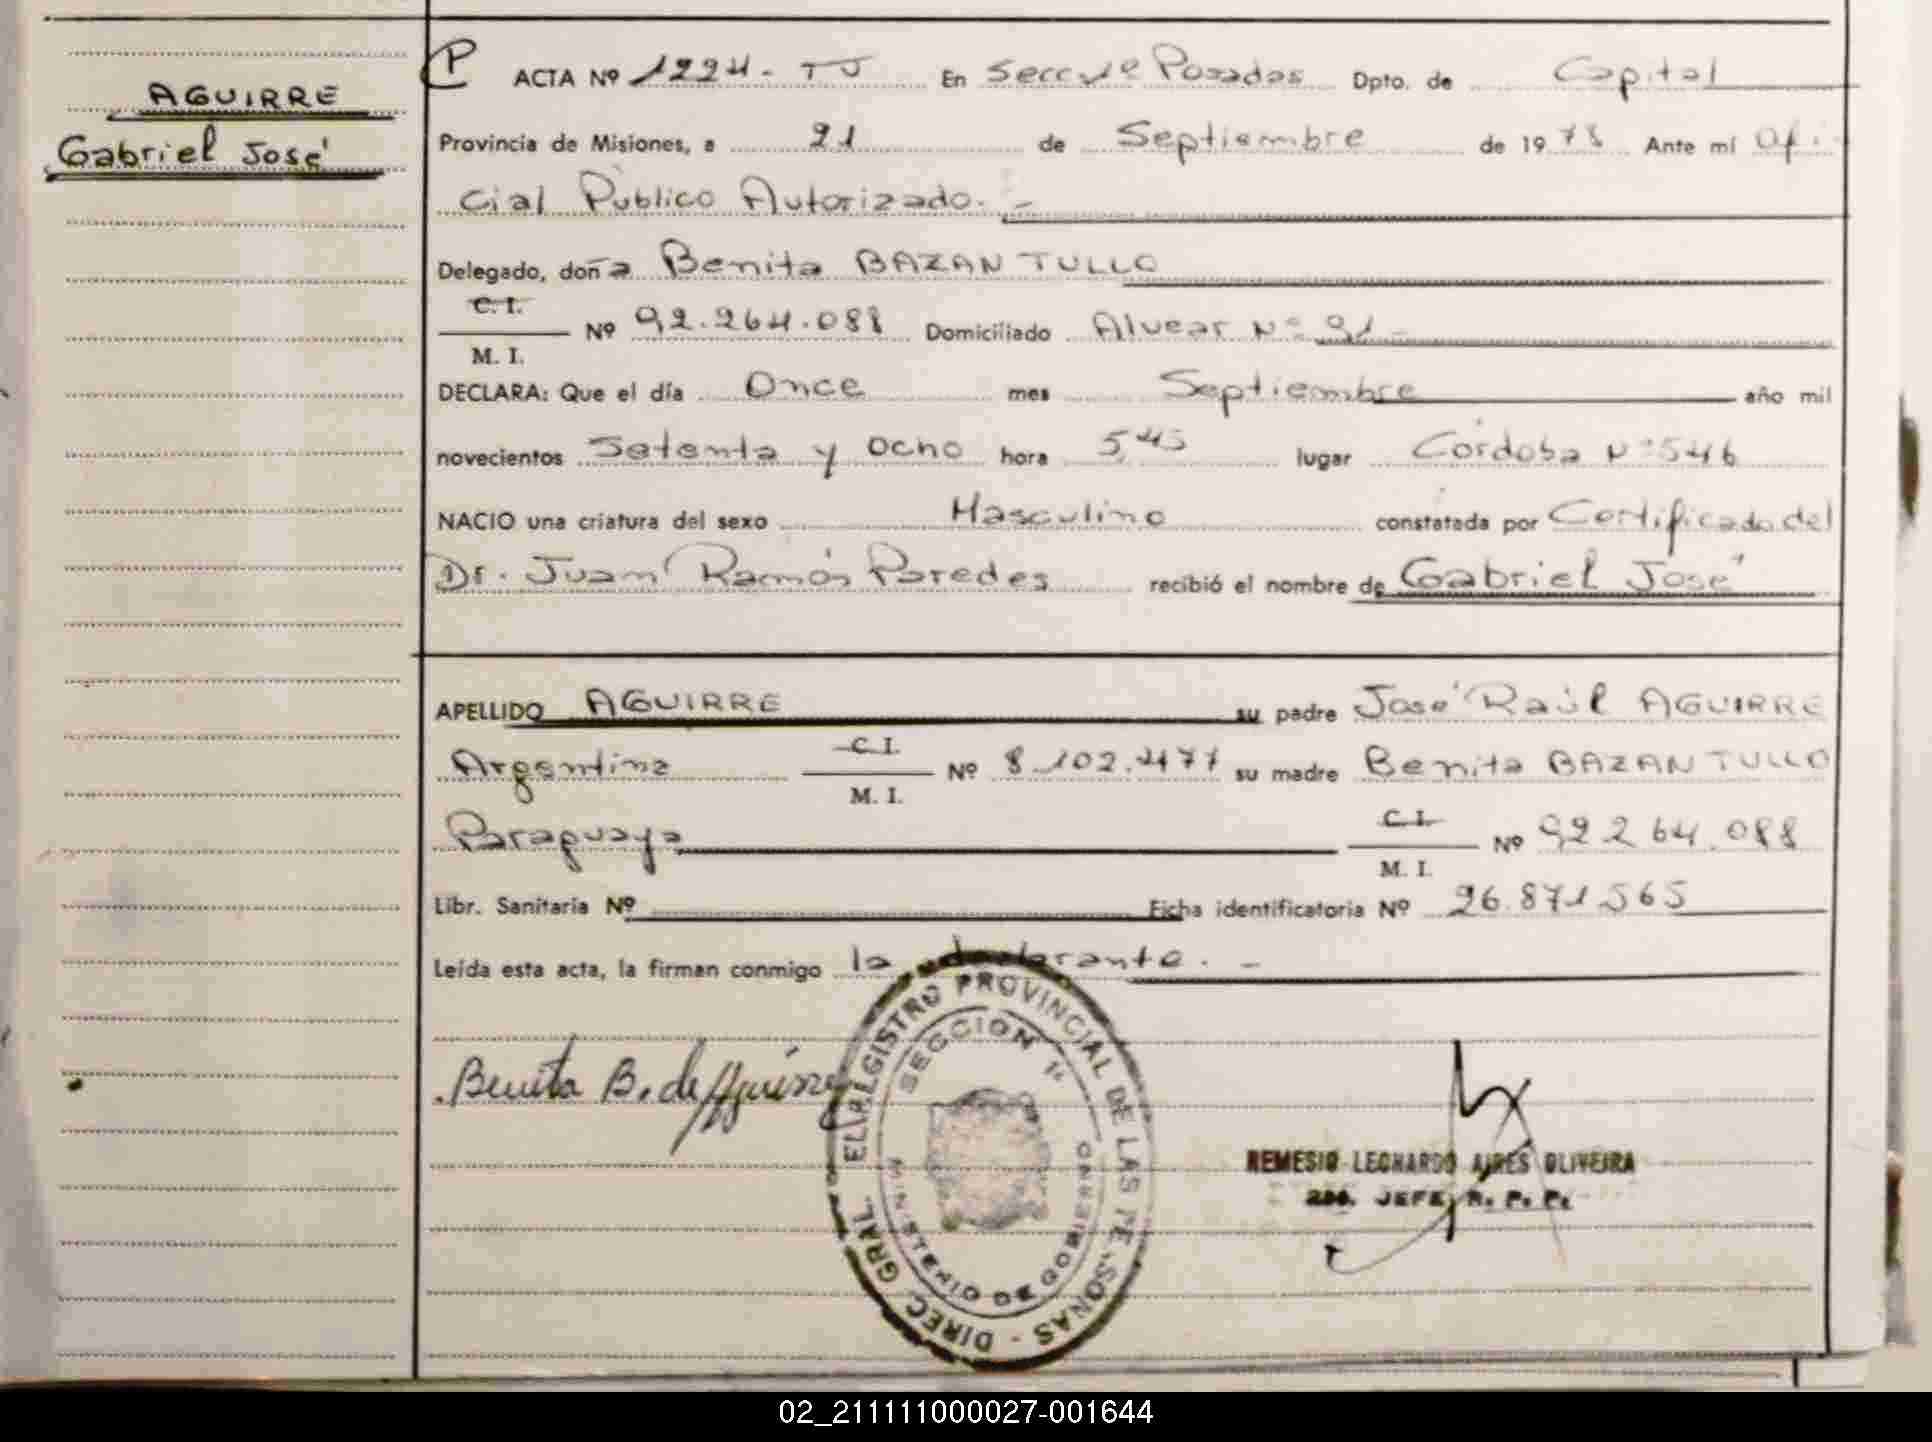 AGUIRRE
Gabriel José
P ACTA Nº 1224 - TJ En Secc. 1º Posadas Dpto. de Capital
Provincia de Misiones, a 21 de Septiembre de 1978 Ante mí Ofi-
cial Público Autorizado. -
Delegado, doña Benita BAZAN TULLO
C. I.
M. I. Nº 92.264.088 Domiciliado Alvear Nº 91 -
DECLARA: Que el día Once mes Septiembre año mil
novecientos Setenta y ocho hora 5,45 lugar Córdoba Nº 546
NACIO una criatura del sexo Masculino constatada por Certificado del
Dr. Juan Ramón Paredes recibió el nombre de Gabriel José
APELLIDO AGUIRRE su padre José Raúl AGUIRRE
Argentina C. I.
M. I. Nº 8.102.477 su madre Benita BAZAN TULLO
Paraguaya C. I.
M. I. Nº 92 264.088
Libr. Sanitaria Nº Ficha identificatoria Nº 26.871.565
Leída esta acta, la firman conmigo la declarante. -
Benita B. de Aguirre
DIREC. GRAL. REGISTRO PROVINCIAL DE LAS PERSONAS -
SECCION 1ª
MINISTERIO DE GOBIERNO
REMESIO LEONARDO AIRES OLIVEIRA
JEFE R. P. P.
02_211111000027-001644